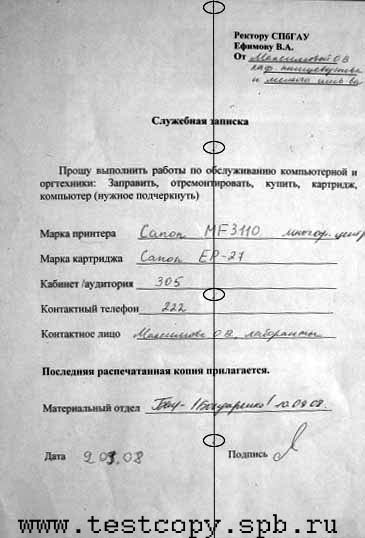 Ректору СПбГАУ
Ефимову В.А.
От Максимовой О В
каф.
и мелкого
Служебная записка
Прошу выполнить работы по обслуживанию компьютерной и
оргтехники: Заправить, отремонтировать, купить, картридж,
компьютер (нужное подчеркнуть)
Марка принтера Canon MF3110 многоф. центр
Марка картриджа Canon EP-27
Кабинет /аудитория 305
Контактный телефон 222
Контактное лицо Максимова О В, лаборанты
Последняя распечатанная копия прилагается.
Материальный отдел /Бондаренко/ 10.09.08.
Дата 9.09.08 Подпись
www.testcopy.spb.ru